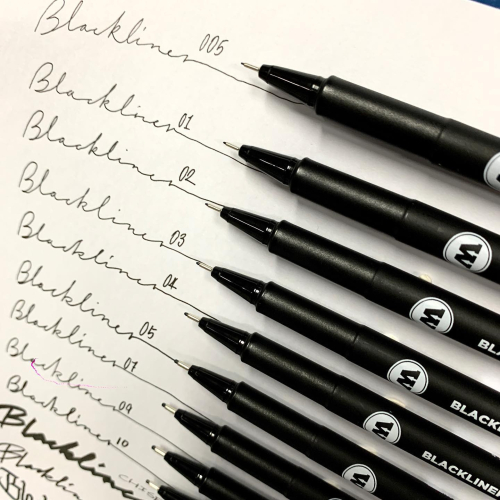 Blackliner 005
Blackliner 01
Blackliner 02
Blackliner 03
Blackliner 04
Blackliner 05
Blackliner 07
Blackliner 09
Blackliner 10
Blackliner
Blackliner
BLACKL
BLACKLINE